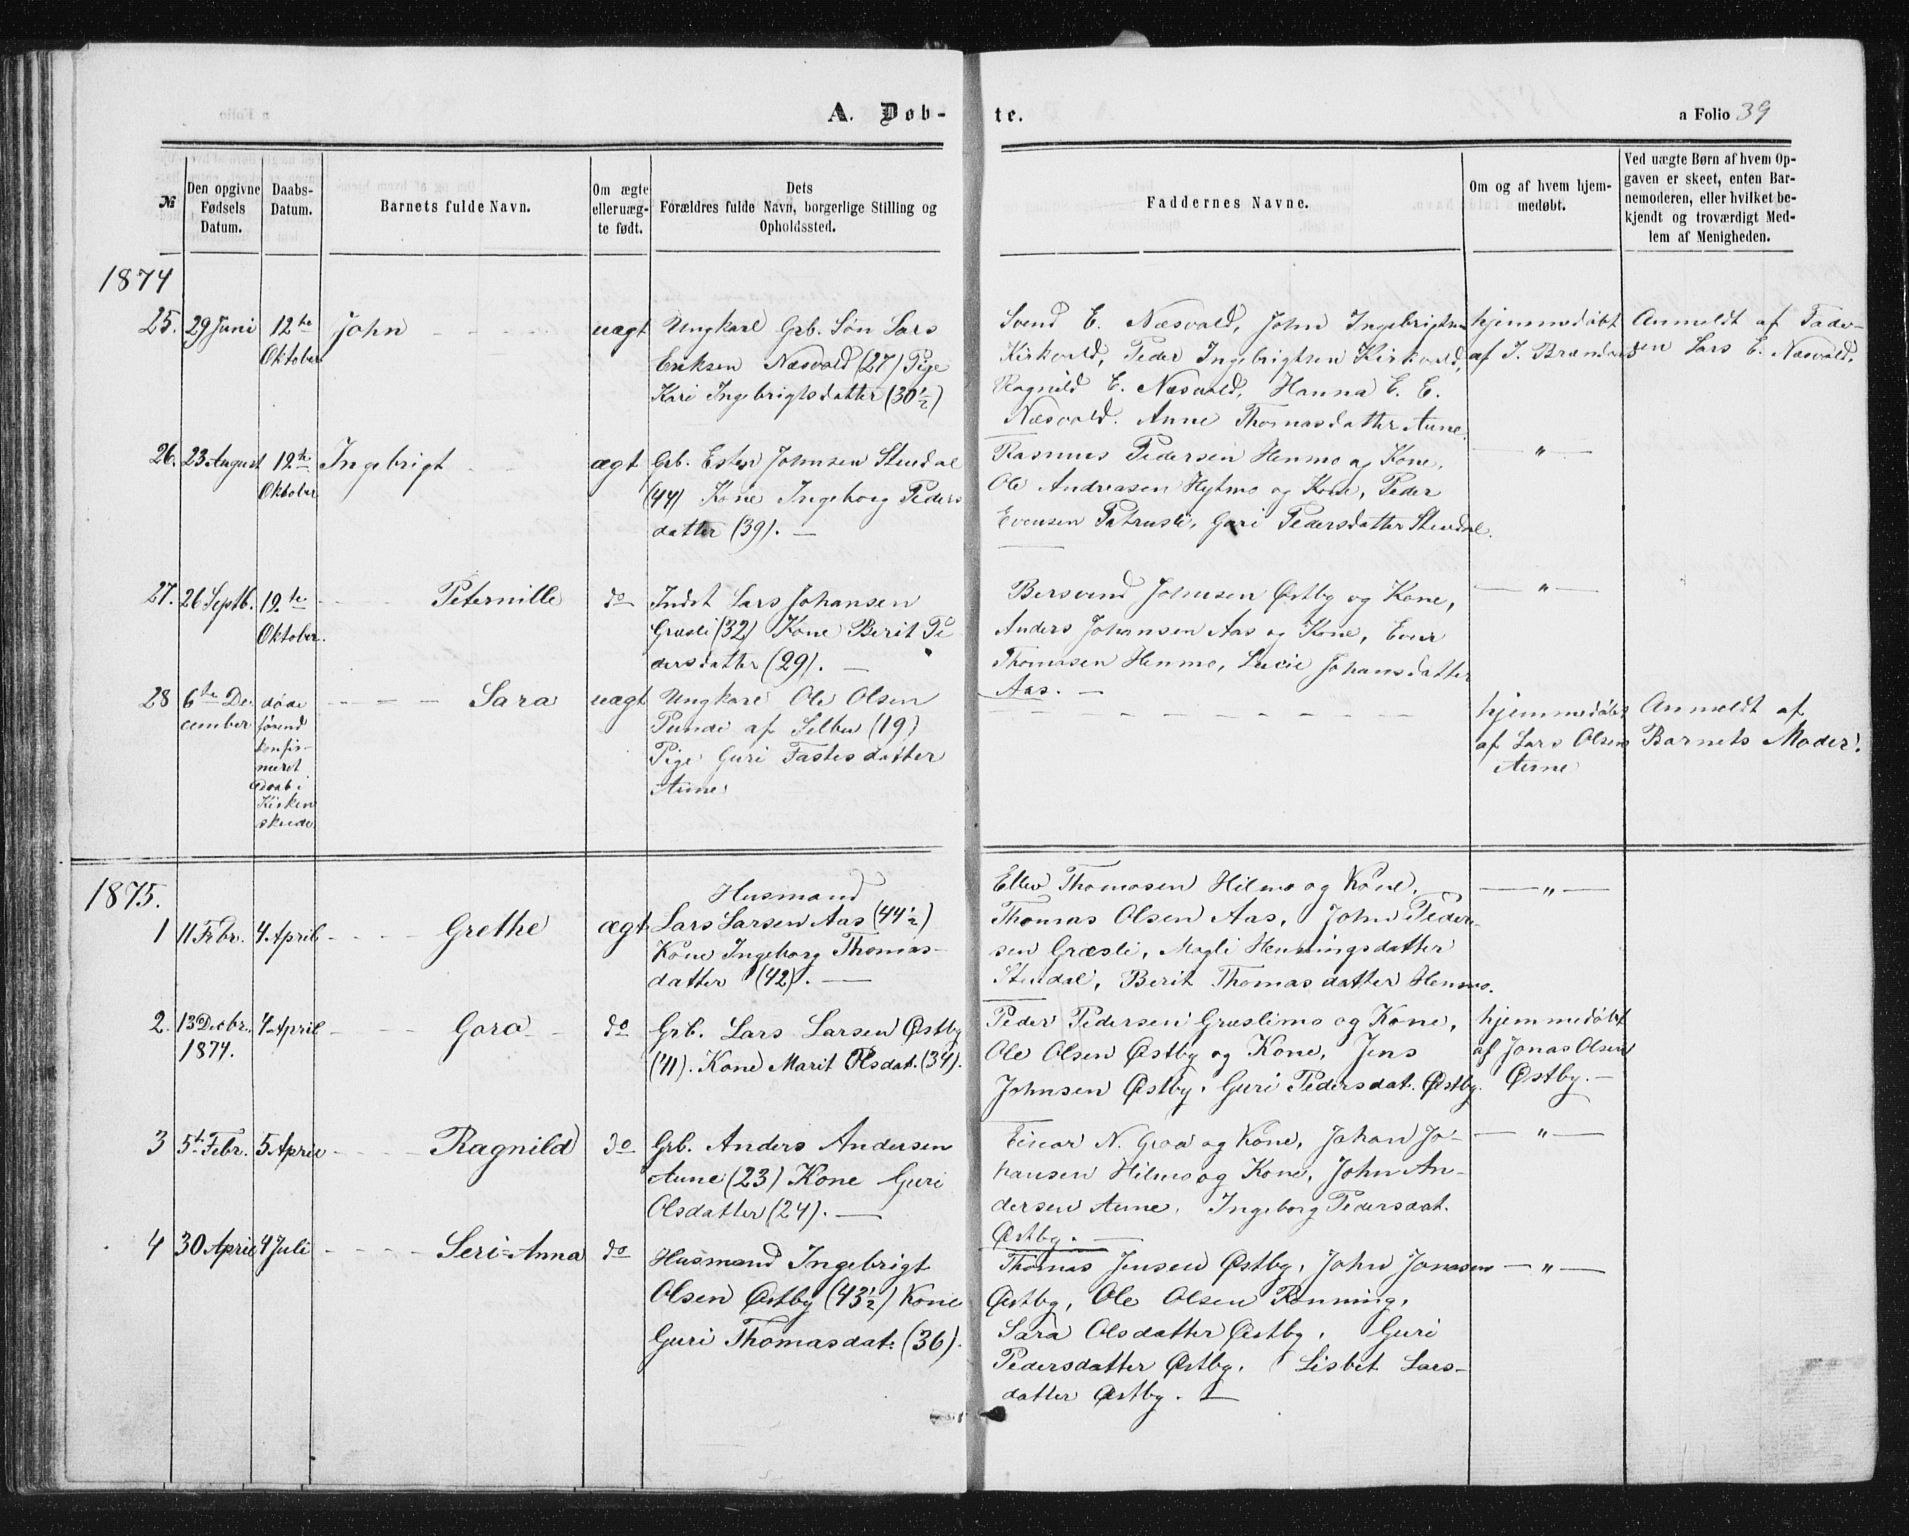 A. Døb-
te.
a Folio 39
№
Den opgivne Fødsels Datum.
Daabs-Datum.
Barnets fulde Navn.
Om ægte eller uæg-te født.
Dets Forældres fulde Navn, borgerlige Stilling og Opholdssted.
Faddernes Navne.
Om og af hvem hjem-medøbt.
Ved uægte Børn af hvem Op-gaven er skeet, enten Bar-nemoderen, eller hvilket be-kjendt og troværdigt Med-lem af Menigheden.
1874
25. 29 Juni 12te Oktober John uægt
Ungkarl Grb. Søn Lars
Eriksen Næsvold (27) Pige
Kari Ingebrigtsdatter (30½)
Svend E. Næsvold, John Ingebrigtsen
Kirkvold, Peder Ingebrigtsen Kirkvold,
Ragnild E. Næsvold, Hanna E. E.
Næsvold. Anne Thomasdatter Aune.
hjemmedøbt
af J. Brændvold
Anmeldt af Fade-
ren Lars E. Næsvold.
26. 23 August 12te Oktober Ingebrigt ægt
Grb. Esten Johnsen Stendal
(44) Kone Ingeborg Peders
datter (39). —
Rasmus Pedersen Henmo og Kone,
Ole Andreasen Hytmo og Kone, Peder
Evensen Patrusli, Guri Pedersdatter Stendal.
— " —
27. 26 Septb. 19te Oktober. Peternille do
Indst Lars Johansen
Græsli (32) Kone Berit Pe
dersdatter (29). —
Bersvend Johnsen Østby og Kone,
Anders Johansen Aas og Kone, Ever
Thomasen Henmo, Lucie Johansdatter
Aas. —
— " —
28 6te De-
cember
døde
førend
konfir-
meret
Daab i
Kirken
skede.
Sara uægt
Ungkarl Ole Olsen
Punde af Selbu (19)
Pige Guri Fastesdatter
Aune
hjemmedøbt
af Lars Olsen
Aune
Anmeldt af
Barnets Moder.
1875.
1 11 Febr. 4 April Grethe ægt
Husmand
Lars Larsen Aas (44½)
Kone Ingeborg Thomas-
datter (42). —
Ellev Thomasen Hilmo og Kone,
Thomas Olsen Aas, John Peder-
sen Græsli, Magli Henningsdatter
Stendal, Berit Thomasdatter Henmo.
— " —
2. 13 Decbr. 1874. 4 April Goro do
Grb. Lars Larsen Østby
(41). Kone Marit Olsdat. (34).
Peder Pedersen Græslimo og Kone,
Ole Olsen Østby og Kone, Jens
Johnsen Østby. Guri Pedersdat. Østby.
hjemmedøbt
af Jonas Olsen
Østby. —
3 5te Febr. 5 April Ragnild do
Grb. Anders Andersen
Aune (23) Kone Guri
Olsdatter (24). —
Einar N. Groa og Kone, Johan Jo-
hansen Hilmo og Kone, John An-
dersen Aune, Ingeborg Pedersdat.
Østby. —
— " —
4 30 April 4 Juli Seri-Anna do
Husmand Ingebrigt
Olsen Østby (43½) Kone
Guri Thomasdat. (36).
Thomas Jensen Østby, John Jonasen
Østby, Ole Olsen Rønning,
Sara Olsdatter Østby, Guri
Pedersdatter Østby, Lisbet Lars-
datter Østby. —
— " —